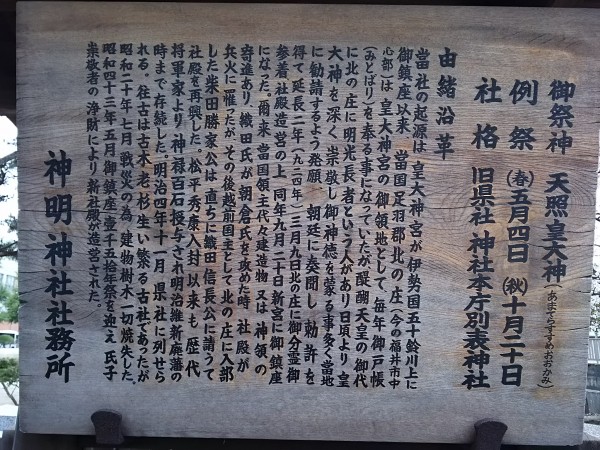 御祭神 天照皇大神(あまてらすすめおおかみ)
例祭 (春)五月四日 (秋)十月二十日
社格 旧県社 神社本庁別表神社
由緒沿革
當社の起源は 皇大神宮が伊勢国五十鈴川上に
御鎮座以来、當国足羽郡北の庄(今の福井市中
心部)は 皇大神宮の御領地として 毎年 御戸帳
(みとばり)を奉る事になっていたが醍醐天皇の御代
に北の庄に明光長者という人があり日頃より 皇
大神を深く崇敬し御神徳を蒙る事多く當地
に勧請するよう発願、朝廷に奏聞し 勅許を
得て延長二年(九二四年)三月九日北の庄に御分霊御
参着社殿造営の上 同年九月二十日新宮に御鎮座
になった。爾来 當国領主代々建造物 又は 神領の
寄進あり、織田氏が朝倉氏を攻めた時 社殿が
兵火に罹ったが その後越前国主として 北の庄に入部
した柴田勝家公は 直ちに織田信長公に請うて
社殿を再興した。松平秀康入封以来も 歴代
将軍家より 神禄百石授与され明治維新廃藩の
時まで存続した。明治四年十一月 県社に列せら
れる。往古は古木 老杉生い繁る古社であったが
昭和二十年七月 戦災の為 建物樹木一切焼失した。
昭和四十三年五月 御鎮座壹千五拾年祭を迎え 氏子
崇敬者の浄財により新社殿が造営された。
神明神社社務所